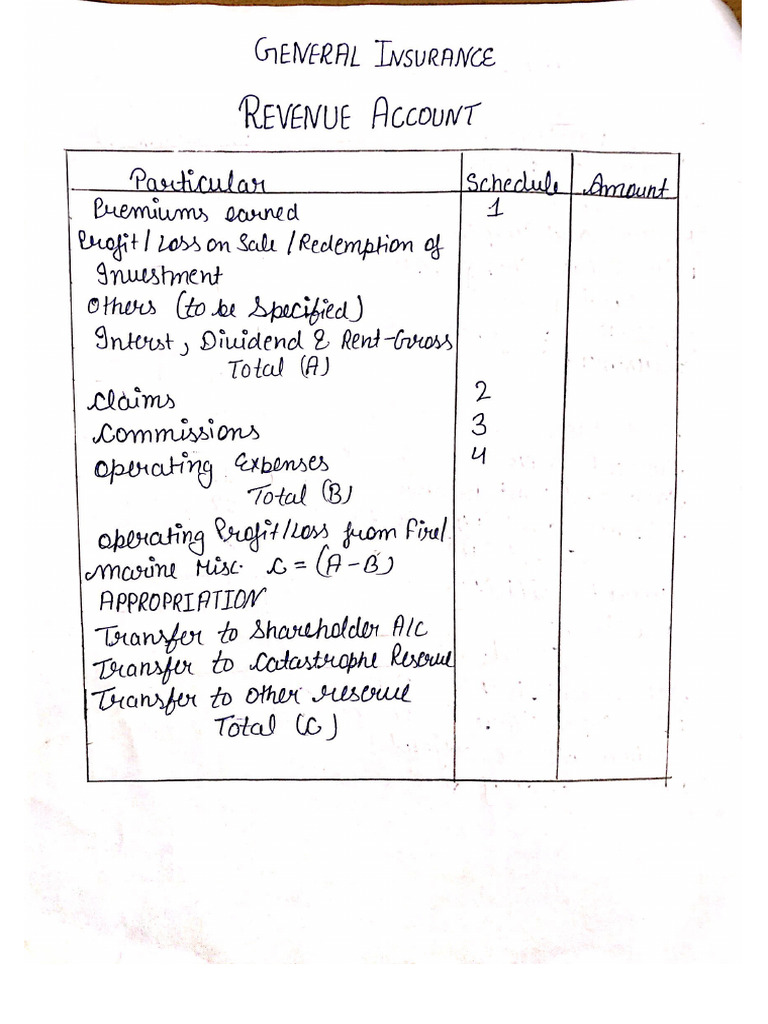 GENERAL INSURANCE
REVENUE ACCOUNT
Particular Schedule Amount
Premiums earned 1
Profit/Loss on Sale/Redemption of
Investment
Others (to be Specified)
Interst, Dividend & Rent-Gross
Total (A)
Claims 2
Commissions 3
Operating Expenses 4
Total (B)
Operating Profit/Loss from Fire/
Marine Misc. C = (A-B)
APPROPRIATION
Transfer to Shareholder A/C
Transfer to Catastrophe Reserve
Transfer to Other reserve
Total (C)